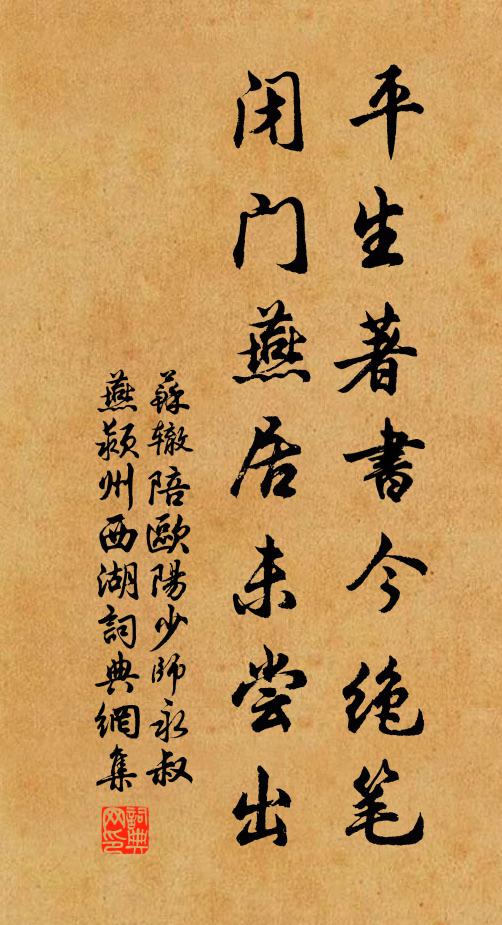 平生著書今绝笔
闭门燕居未尝出
蘇辙陪歐陽少師永叔
燕颍州西湖詞典網集
詞典
网印